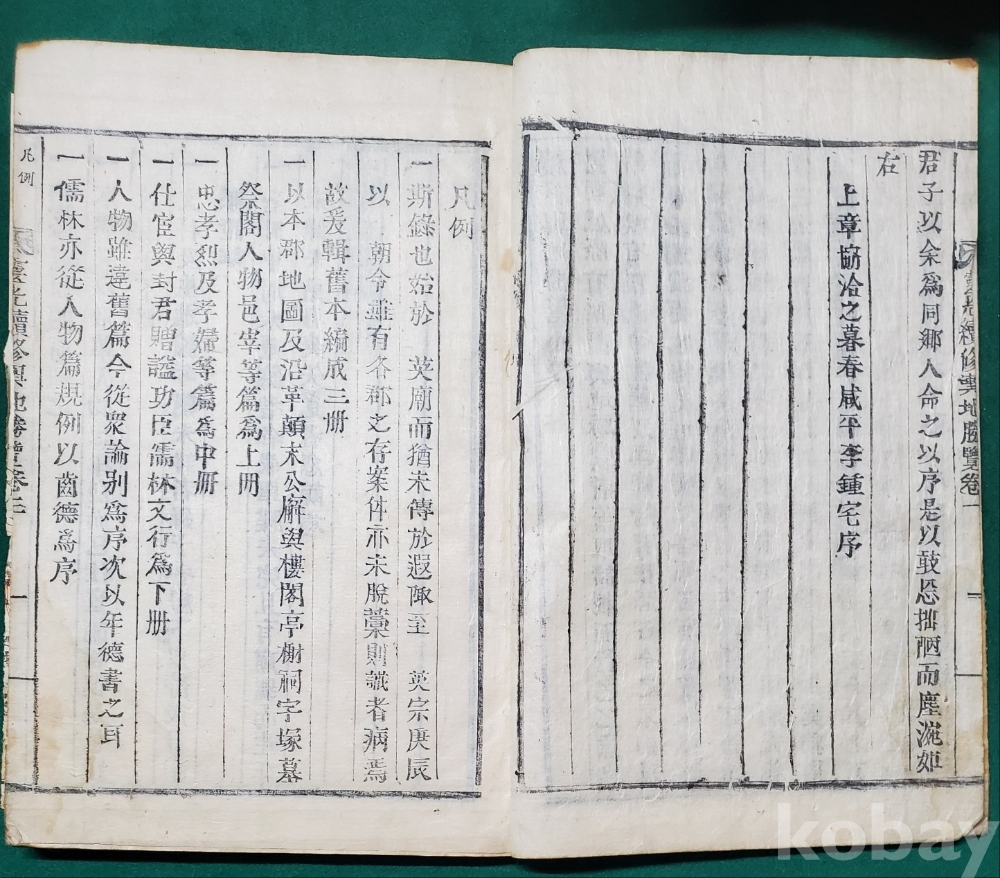 君子以余爲同鄉人命之以序是以鼓忘拙陋而塵涴如
右
上章協洽之暮春咸平李鍾宅序
續修輿地勝覽卷一
凡例
一斯錄也始於 英廟而猶未傳於遐陬至 英宗庚辰
以 朝令雖有各郡之存案件亦未脫藁則識者病焉
故爰輯舊本編成三册
一以本郡地圖及沿革顛末公廨與樓閣亭榭祠宇塚墓
祭閣人物邑宰等篇爲上册
一忠孝烈及孝婦等篇爲中册
一仕宦與封君贈諡功臣儒林文行爲下册
一人物雖違舊篇今從衆論别爲序次以年德書之耳
一儒林亦從人物篇規例以齒德爲序
凡例
續修輿地勝覽卷
一
kobay